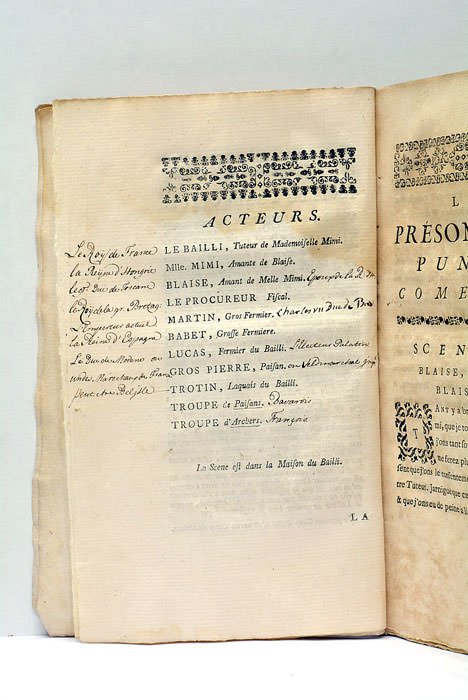 ACTEURS.
Le Roy de France LE BAILLI, Tuteur de Mademoiselle Mimi.
la Reyne d'Hongrie Mlle. MIMI, Amante de Blaise.
Duc de Toscane BLAISE, Amant de Melle Mimi. Epoux de la R.
le Roy de la gr. Bretag: LE PROCUREUR Fiscal.
L'Empereur actuel MARTIN, Gros Fermier. Charles duc de
la Reine d'Espagne BABET, Grosse Fermiere.
Le Duc de ou LUCAS, Fermier du Bailli. l'Electeur Palatin
un des Marechaux de Fran GROS PIERRE, Paisan.
peut etre Belisle TROTIN, Laquais du Bailli.
TROUPE de Paisans. Bavarois
TROUPE d'Archers. François
La Scene est dans la Maison du Bailli.
LA
L
PRÉSOM
PUN
COME
SCEN
BLAISE,
BLAIS
TANT y a b
mi, que je to
j'ons tant so
ne ferez plu
sent que j'ons le sussentement
tre Tuteur. Jarnigue que ce
& que j'ons eu de peine à